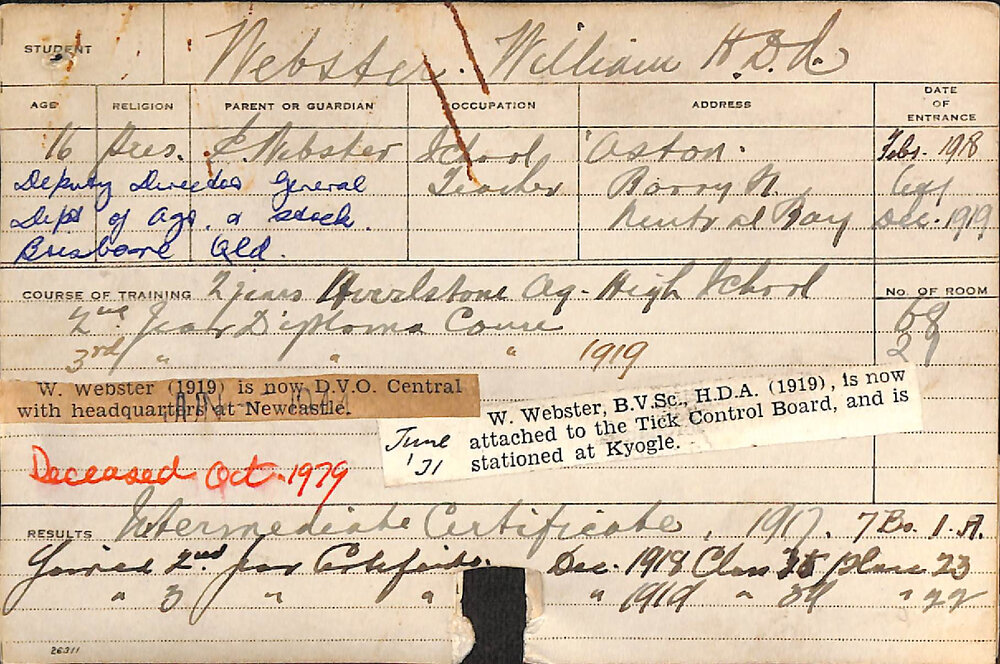 STUDENT Webster. William H.D.A.
AGE RELIGION PARENT OR GUARDIAN OCCUPATION ADDRESS DATE OF ENTRANCE
16 Pres. E. Webster School 'Aston. Feby. 1918
Deputy Director General Teacher Barry St
Dept of Agr. & Stock. Neutral Bay Dec. 1919
Brisbane Qld.
COURSE OF TRAINING 2 years Hurlstone Ag- High School No. OF ROOM
2nd Year Diploma Course 68
3rd " " " 1919 29
W. Webster (1919) is now D.V.O. Central
with headquarters at Newcastle.
JUN
W. Webster, B.V.Sc., H.D.A. (1919), is now
attached to the Tick Control Board, and is
stationed at Kyogle.
June
'31
Deceased Oct. 1979
RESULTS Intermediate Certificate, 1917. 7 Bs. 1.A.
Gained 2nd year Certificate. Dec. 1918 Class 35 place 23
" 3 " " " 1919 " 39 " 22
26311